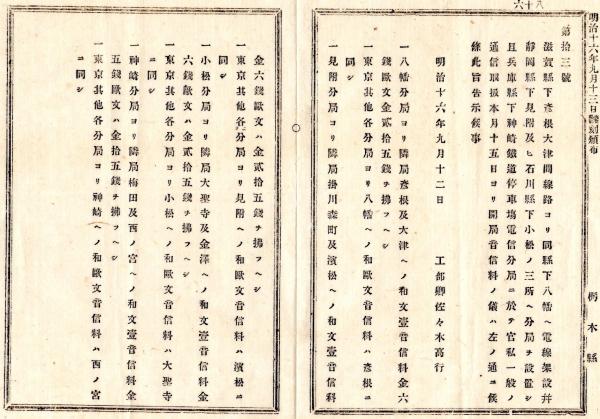 明治十六年九月十二日翻刻頒布
栃木縣
八十六
第拾三號
滋賀縣下彦根大津間線路ヨリ同縣下八幡ヘ電線架設幷
靜岡縣下見附及ヒ石川縣下小松ノ三所ヘ分局ヲ設置シ
且兵庫縣下神崎鐵道停車塲電信分局ニ於テ官私一般ノ
通信取扱本月十五日ヨリ開局音信料ノ儀ハ左ノ通ニ候
條此旨告示候事
明治十六年九月十二日
工部卿佐々木高行
一八幡分局ヨリ隣局彦根及大津ヘノ和文壹音信料金六
錢歐文ハ金貳拾五錢ヲ拂フヘシ
一東京其他各分局ヨリ八幡ヘノ和歐文音信料ハ彦根ニ
同シ
一見附分局ヨリ隣局掛川森町及濱松ヘノ和文壹音信料
金六錢歐文ハ金貳拾五錢ヲ拂フヘシ
一東京其他各分局ヨリ見附ヘノ和歐文音信料ハ濱松ニ
同シ
一小松分局ヨリ隣局大聖寺及金澤ヘノ和文壹音信料金
六錢歐文ハ金貳拾五錢ヲ拂フヘシ
一東京其他各分局ヨリ小松ヘノ和歐文音信料ハ大聖寺
ニ同シ
一神崎分局ヨリ隣局梅田及西ノ宮ヘノ和文壹音信料金
五錢歐文ハ金拾五錢ヲ拂フヘシ
一東京其他各分局ヨリ神崎ヘノ和歐文音信料ハ西ノ宮
ニ同シ